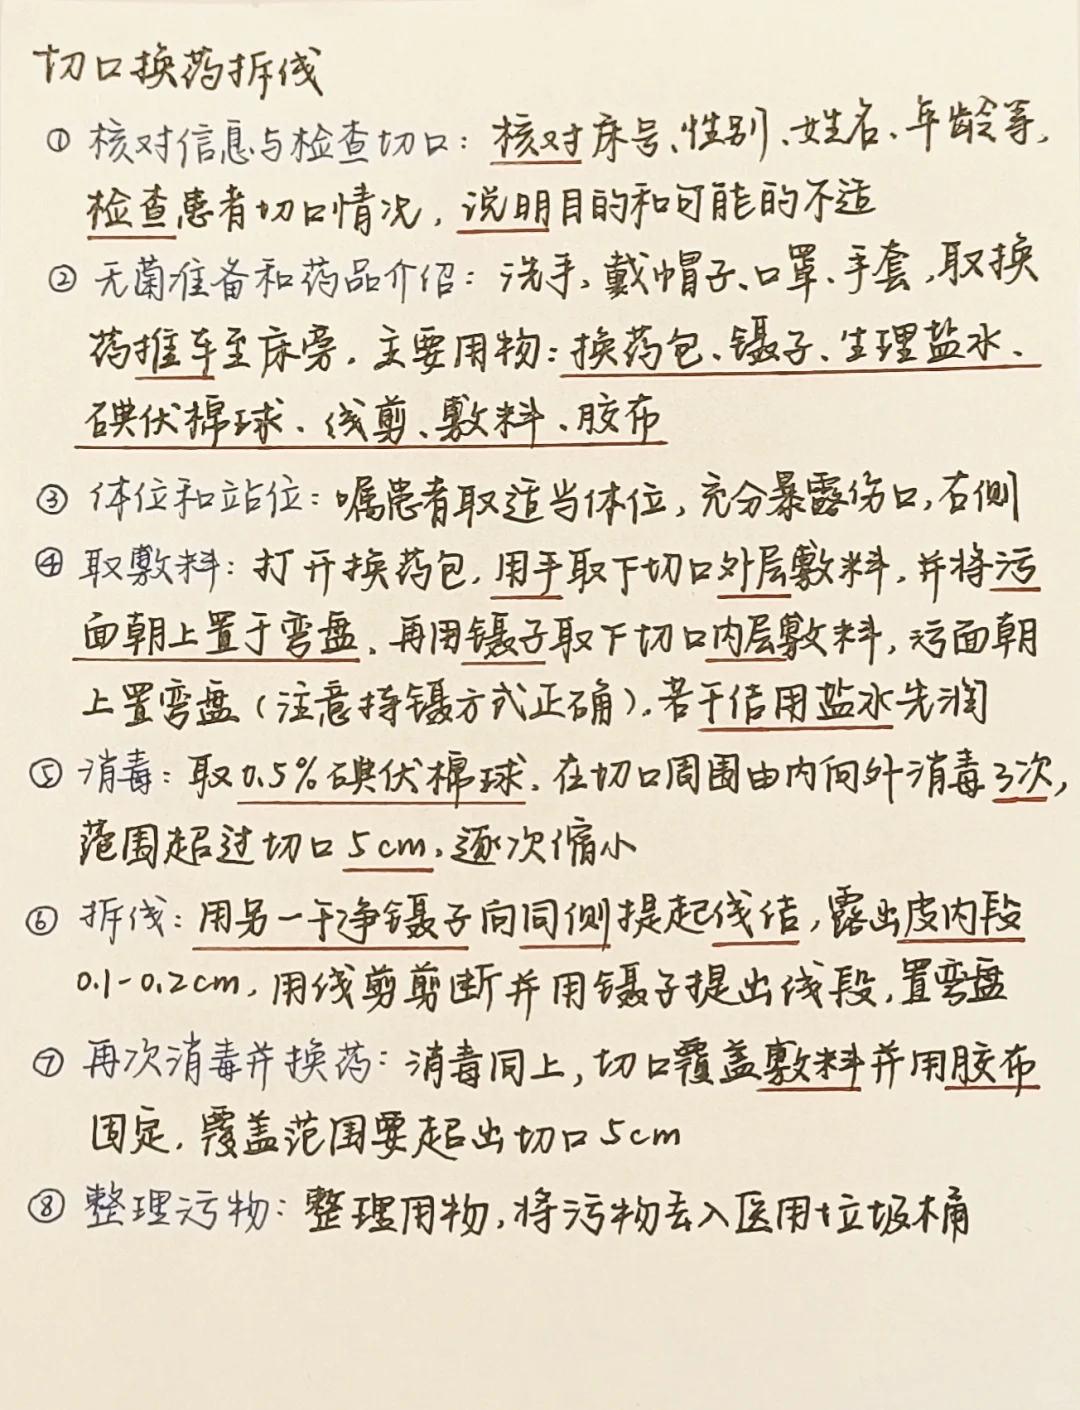 切口换药拆线
① 核对信息与检查切口：核对床号、性别、姓名、年龄等，
检查患者切口情况，说明目的和可能的不适
② 无菌准备和药品介绍：洗手、戴帽子、口罩、手套，取换
药推车至床旁，主要用物：换药包、镊子、生理盐水、
碘伏棉球、线剪、敷料、胶布
③ 体位和站位：嘱患者取适当体位，充分暴露伤口，右侧
④ 取敷料：打开换药包，用手取下切口外层敷料，并将污
面朝上置于弯盘，再用镊子取下切口内层敷料，污面朝
上置弯盘（注意持镊方式正确），若干结用盐水先润
⑤ 消毒：取0.5%碘伏棉球，在切口周围由内向外消毒3次，
范围超过切口5cm，逐次缩小
⑥ 拆线：用另一干净镊子向同侧提起线结，露出皮内段
0.1-0.2cm，用线剪剪断并用镊子提出线段，置弯盘
⑦ 再次消毒并换药：消毒同上，切口覆盖敷料并用胶布
固定，覆盖范围要超出切口5cm
⑧ 整理污物：整理用物，将污物丢入医用垃圾桶